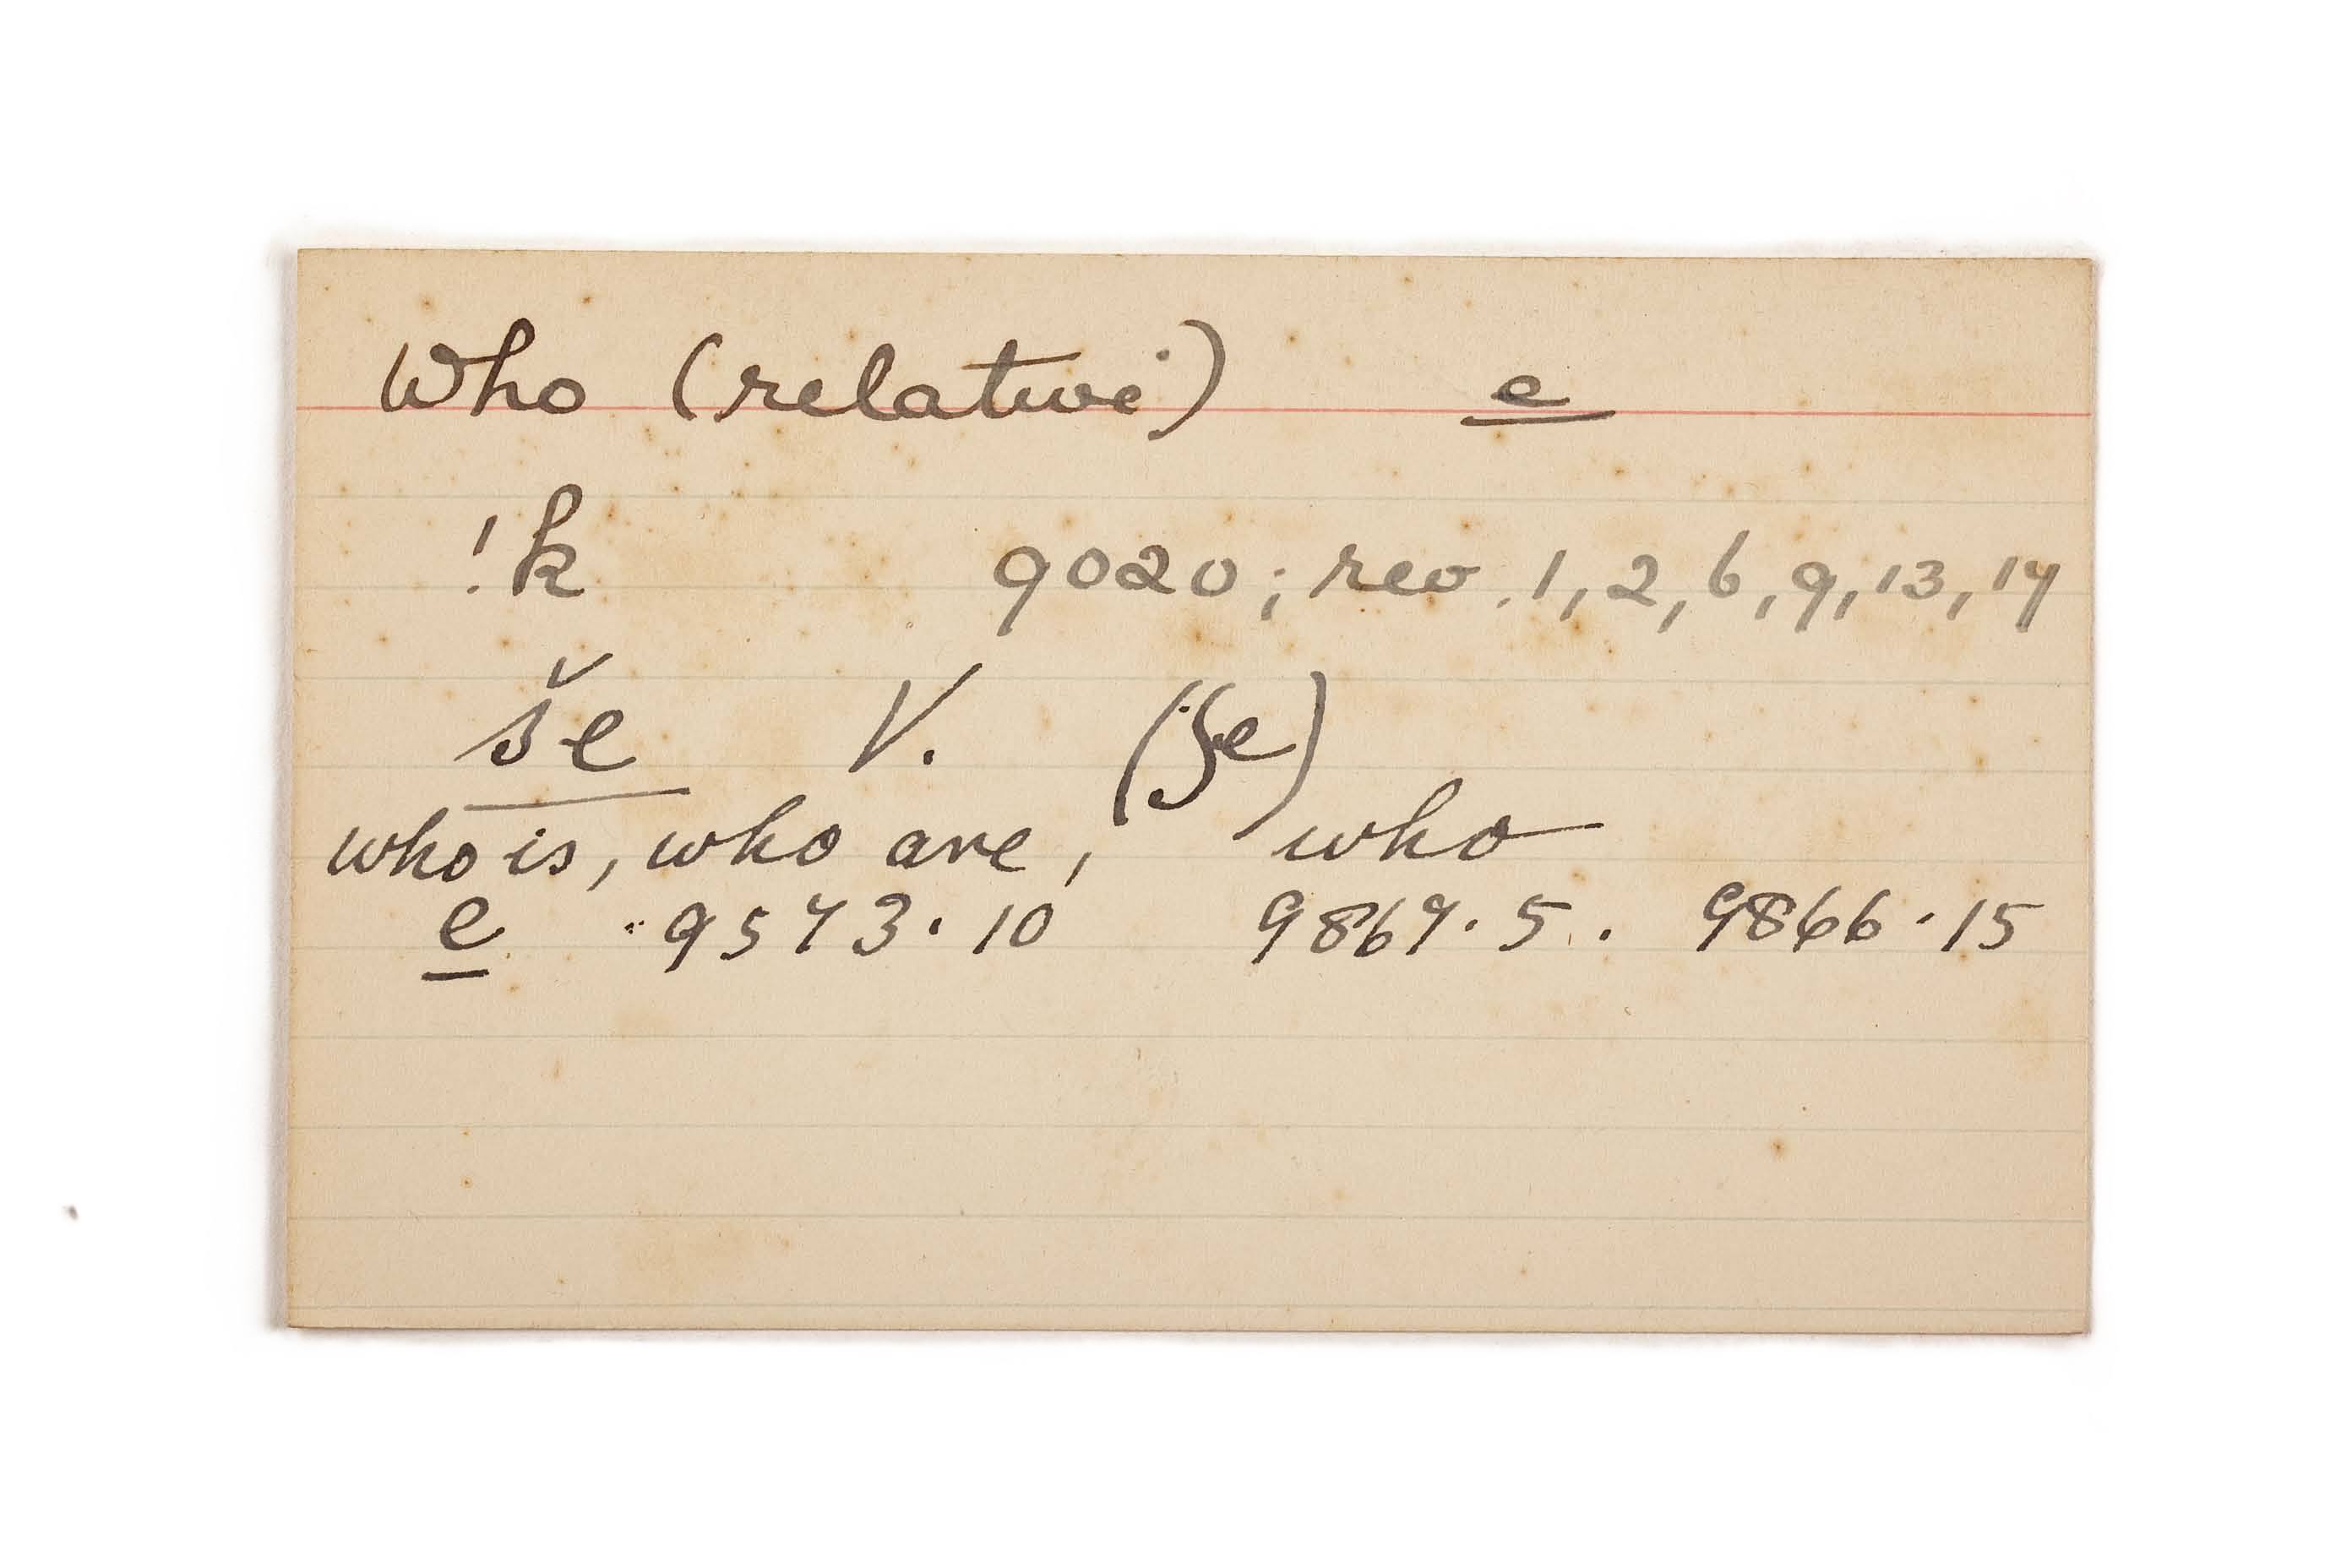 Who (relative) e
!k 9020; rev. 1, 2, 6, 9, 13, 14
še V. (ʃe)
who is, who are, who
e 9543.10 9867.5. 9866.15